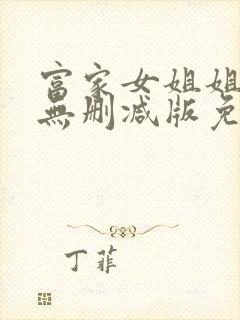 富家女姐姐
無删减版免
丁菲